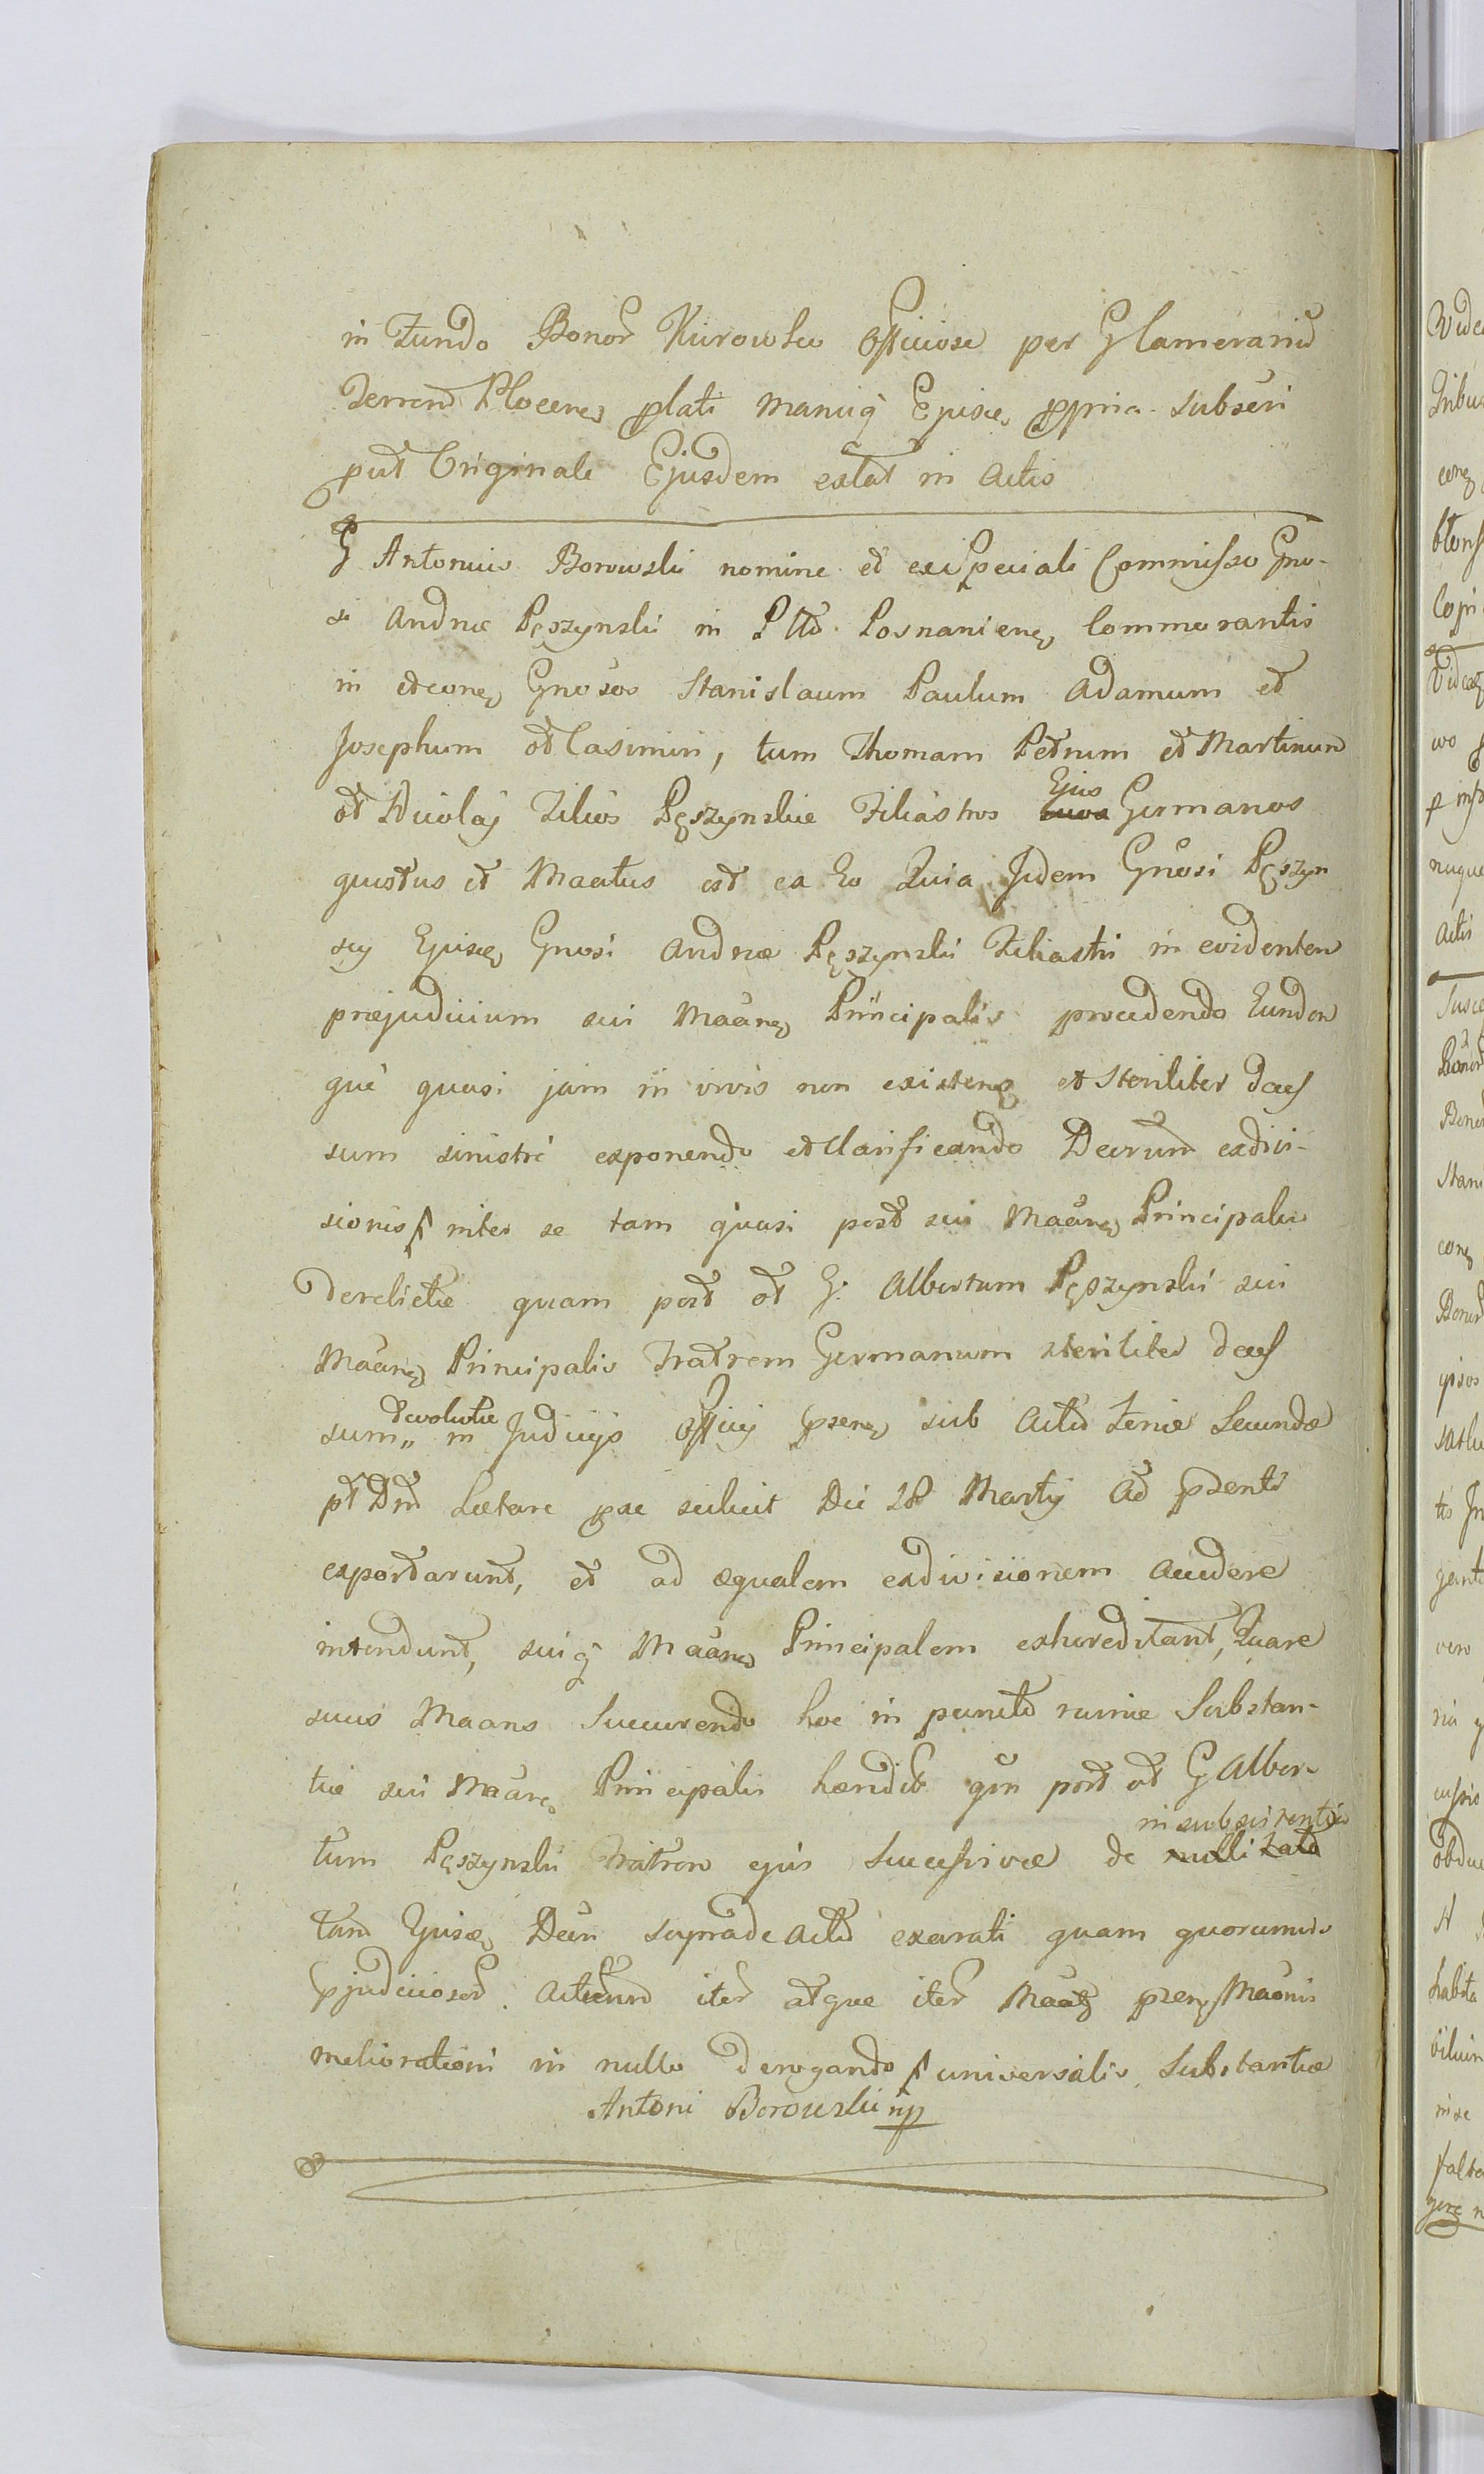 in Fundo Bonor Kurowko Officiose per G Camerariu
Terren Plocens plati manuq Episc ppria subscri
put Originale Ejusdem extat in Actis
G Antonius Borowski nomine et exi Speciali Commisso Gno-
si Andreæ Pęszynski in Pltu Posnaniens Commorantis
in et cons Gnosos Stanislaum Paulum Adamum et
Josephum ot Casimiri, tum Thomam Petrum et Martinum
ot Nicolaj Filios Pęszynskie Filiastros Ejus Germanos
questus et Maatus est ex Eo Quia Jidem Gnosi Pęszyn
scy Gnosi Andreæ Pęszynski Filiastri in evidentem
præjudicium sui Maans Principalis procedendo Eundem
que quasi jam in vivis non existens et Steriliter deces
sum sinistre exponendo et clarificando Decrum exdivi-
sionis inter se tam quasi post sui Maans Principalis
Derelictæ quam post ot G. Albertum Pęszynski sui
Maans Principalis Fratrem Germanum steriliter deces
sum,, devolutæ in Judicijs officij psens sub Actu Feriæ Secundæ
pt Dni Lætare pae scilicet Die 28 Martij Ad psenti
exportarunt, et ad æqualem exdivisionem accedere
intendunt, suiq Maans Principalem exhereditant, Quare
suus Maans Succurendo hoc in puncto ruinæ Substan-
tiæ sui Maans Principalis hæredit qm post ot G Alber-
tum Pęszynski Fratrem ejus Successivæ de in subsistentia
tam Decri supra de Actu exarati quam quorumvis
pjudiciosor. Actuum iter atque iter Maatq psens Maonis
meliorationi in nullo derogando universalis Substantiæ
Antoni Borowski mp